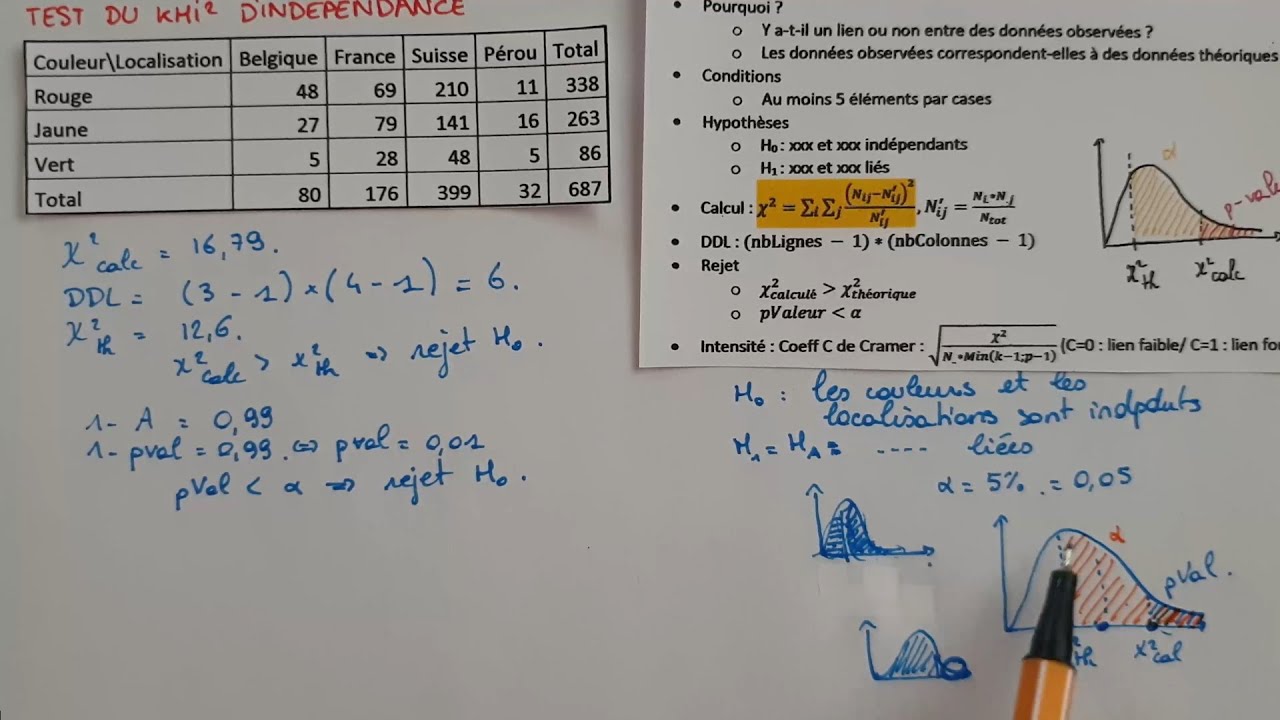 TEST DU KHI² D'INDEPENDANCE
Couleur\Localisation Belgique France Suisse Pérou Total
Rouge 48 69 210 11 338
Jaune 27 79 141 16 263
Vert 5 28 48 5 86
Total 80 176 399 32 687
χ²calc = 16,79.
DDL = (3 - 1) × (4 - 1) = 6.
χ²th = 12,6.
χ²calc > χ²th => rejet H₀.
1 - A = 0,99
1 - pval = 0,99. <=> pval = 0,01
pVal < α => rejet H₀.
• Pourquoi ?
o Y a-t-il un lien ou non entre des données observées ?
o Les données observées correspondent-elles à des données théoriques
• Conditions
o Au moins 5 éléments par cases
• Hypothèses
o H₀ : xxx et xxx indépendants
o H₁ : xxx et xxx liés
• Calcul : χ² = ∑i ∑j (Nij−N'ij)²/N'ij , N'ij = Ni.*N.j/Ntot
• DDL : (nbLignes − 1) * (nbColonnes − 1)
• Rejet
o χ²calculé > χ²théorique
o pValeur < α
• Intensité : Coeff C de Cramer : √(χ²/(N_*Min(k−1;p−1))) (C=0 : lien faible/ C=1 : lien fo
α
p-val
χ²th χ²calc
H₀ : les couleurs et les
localisations sont indpdnts
H₁ = HA = .... liées
α = 5% . = 0,05
α
pVal.
²th χ²cal